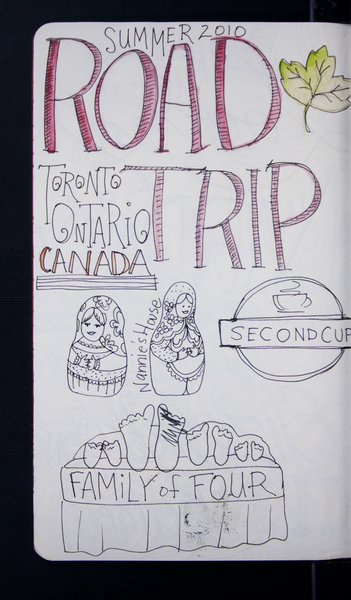 SUMMER 2010
ROAD
TRIP
TORONTO
ONTARIO
CANADA
Nannies House
SECOND CUP
FAMILY of FOUR